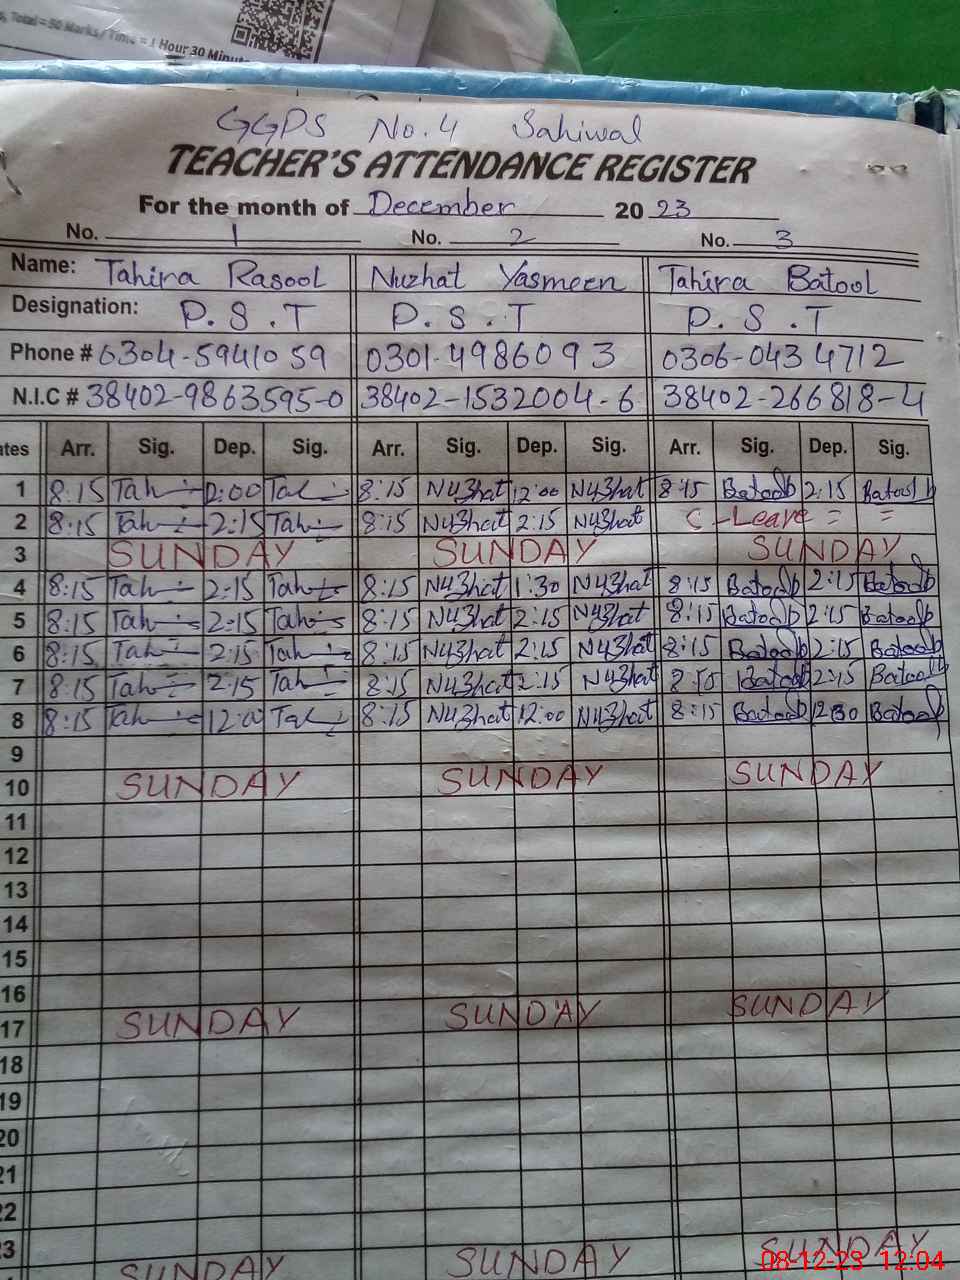 Total = 50 Marks/Time = 1 Hour 30 Minute
GGPS No. 4 Sahiwal
TEACHER'S ATTENDANCE REGISTER
For the month of December 20 23
No. 1 No. 2 No. 3
Name: Tahira Rasool Nuzhat Yasmeen Tahira Batool
Designation: P.S.T P.S.T P.S.T
Phone # 0304-5941059 0301-4986093 0306-0434712
N.I.C # 38402-9863595-0 38402-1532004-6 38402-266818-4
ates Arr. Sig. Dep. Sig. Arr. Sig. Dep. Sig. Arr. Sig. Dep. Sig.
1 8:15 Tah 12:00 Tah 8:15 Nu3hat 12:00 Nu3hat 8:15 Batool 2:15 Batool
2 8:15 Tah 2:15 Tah 8:15 Nu3hat 2:15 Nu3hat C - Leave = =
3 SUNDAY SUNDAY SUNDAY
4 8:15 Tah 2:15 Tah 8:15 Nu3hat 1:30 Nu3hat 8:15 Batool 2:15 Batool
5 8:15 Tah 2:15 Tah 8:15 Nu3hat 2:15 Nu3hat 8:15 Batool 2:15 Batool
6 8:15 Tah 2:15 Tah 8:15 Nu3hat 2:15 Nu3hat 8:15 Batool 2:15 Batool
7 8:15 Tah 2:15 Tah 8:15 Nu3hat 2:15 Nu3hat 8:15 Batool 2:15 Batool
8 8:15 Tah 12:00 Tah 8:15 Nu3hat 12:00 Nu3hat 8:15 Batool 12:30 Batool
9
10 SUNDAY SUNDAY SUNDAY
11
12
13
14
15
16
17 SUNDAY SUNDAY SUNDAY
18
19
20
21
22
23
SUNDAY SUNDAY SUNDAY
08-12-23 12:04